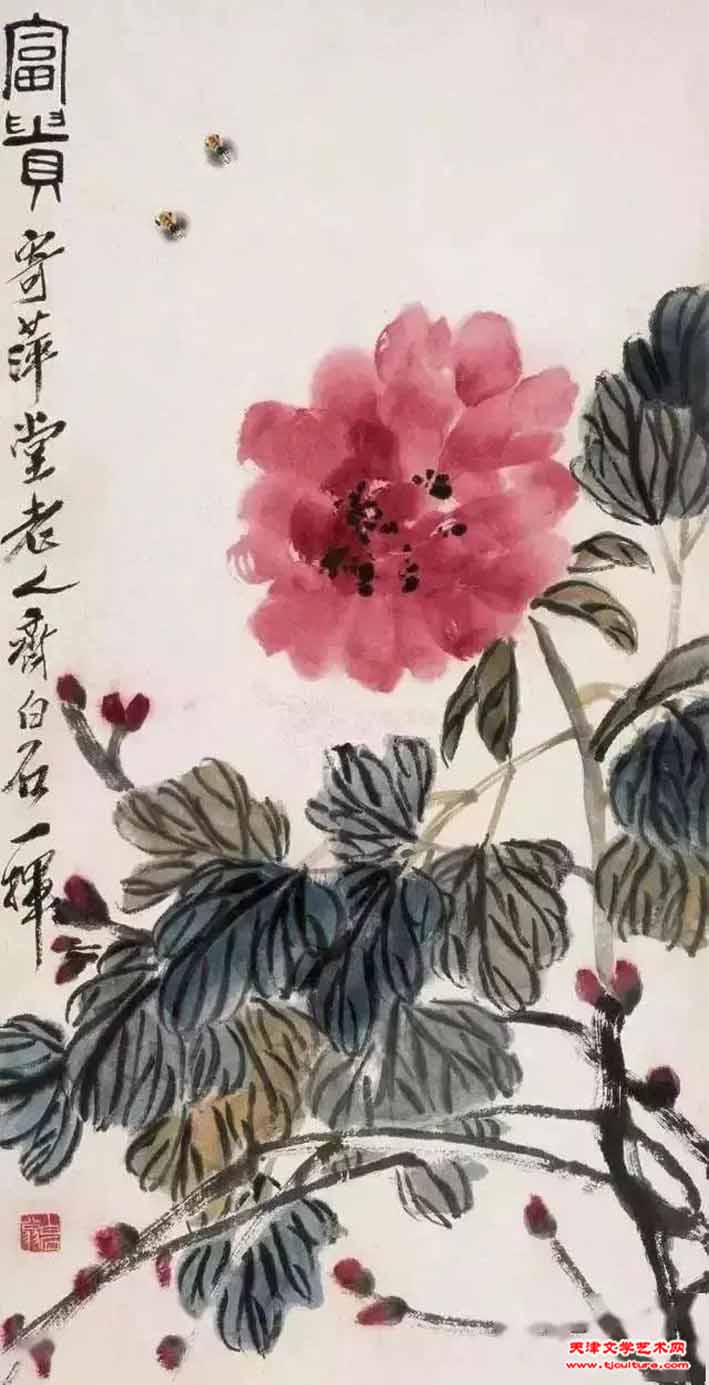 富貴
寄萍堂老人齊白石一揮
天津文学艺术网
www.tjculture.com